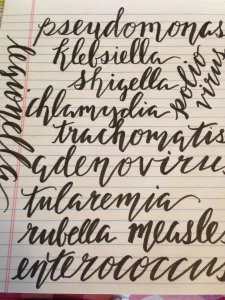 pseudomonas
klebsiella
shigella
chlamydia
trachomatis
adenovirus
tularemia
rubella measles
enterococcus
legionella
polio
virus